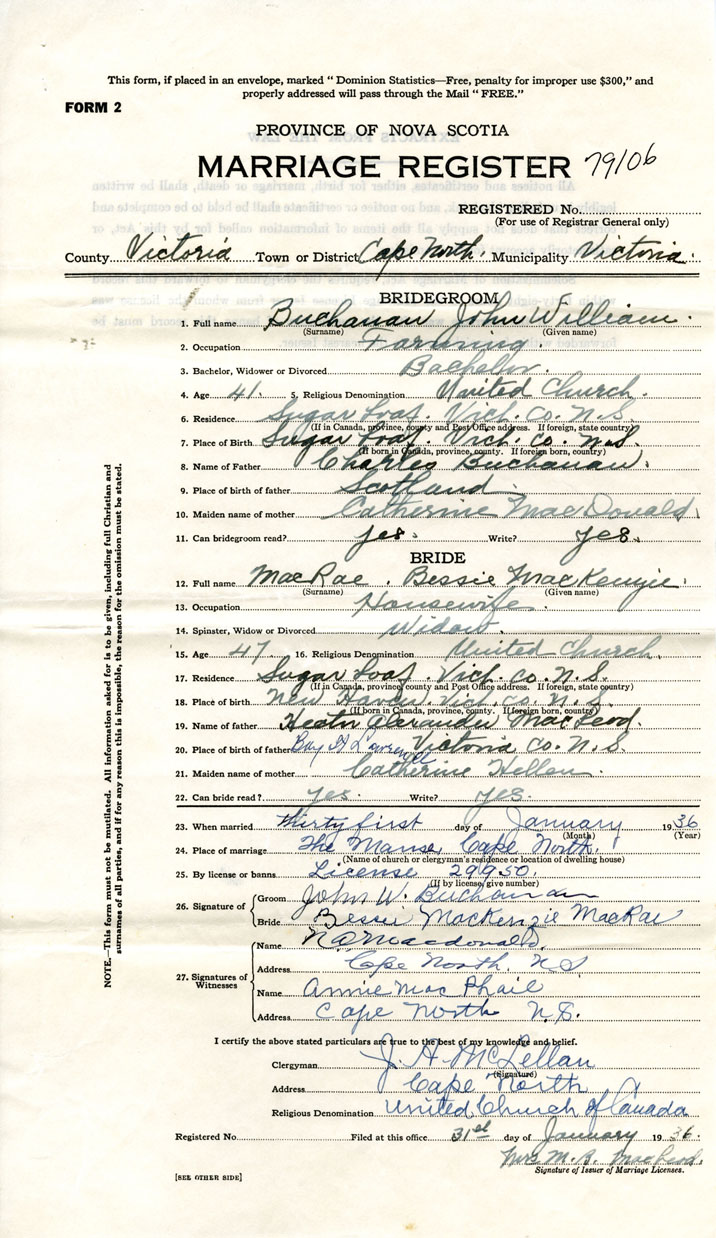 This form, if placed in an envelope, marked “ Dominion Statistics—Free, penalty for improper use $300,” and
properly addressed will pass through the Mail “ FREE.”
FORM 2
PROVINCE OF NOVA SCOTIA
MARRIAGE REGISTER 79106
REGISTERED No.
(For use of Registrar General only)
County Victoria Town or District Cape North. Municipality Victoria.
BRIDEGROOM
1. Full name Buchanan John William.
(Surname) (Given name)
2. Occupation Farming
3. Bachelor, Widower or Divorced Bachelor.
4. Age 41. 5. Religious Denomination United Church.
6. Residence Sugar Loaf. Vict. Co. N.S.
(If in Canada, province, county and Post Office address. If foreign, state country)
7. Place of Birth Sugar Loaf. Vict. Co. N.S.
(If born in Canada, province, county. If foreign born, country)
8. Name of Father Charles Buchanan.
9. Place of birth of father Scotland.
10. Maiden name of mother Catherine MacDonald.
11. Can bridegroom read? yes. Write? yes.
BRIDE
12. Full name MacRae. Bessie MacKenzie.
(Surname) (Given name)
13. Occupation Housewife.
14. Spinster, Widow or Divorced Widow.
15. Age 47. 16. Religious Denomination United Church.
17. Residence Sugar Loaf. Vict. Co. N.S.
(If in Canada, province, county and Post Office address. If foreign, state country)
18. Place of birth New Haven. Vict. Co. N.S.
(If born in Canada, province, county. If foreign born, country)
19. Name of father Hector Alexander MacLeod.
20. Place of birth of father Bay St Lawrence Victoria Co. N.S.
21. Maiden name of mother Catherine Hellen.
22. Can bride read? yes. Write? yes.
23. When married thirty first day of January 1936
(Month) (Year)
24. Place of marriage The Manse, Cape North.
(Name of church or clergyman's residence or location of dwelling house)
25. By license or banns License 29950.
(If by license, give number)
26. Signature of Groom John W. Buchanan
Bride Bessie MacKenzie MacRae
27. Signatures of Witnesses
Name Macdonald,
Address Cape North. N S
Name Annie MacPhail
Address Cape North N.S.
I certify the above stated particulars are true to the best of my knowledge and belief.
Clergyman J. A. McLellan
(Signature)
Address Cape North
Religious Denomination United Church of Canada
Registered No. Filed at this office 31st day of January 1936.
Mrs M. A. MacLeod.
Signature of Issuer of Marriage Licenses.
[SEE OTHER SIDE]
NOTE.—This form must not be mutilated. All information asked for is to be given, including full Christian and
surnames of all parties, and if for any reason this is impossible, the reason for the omission must be stated.